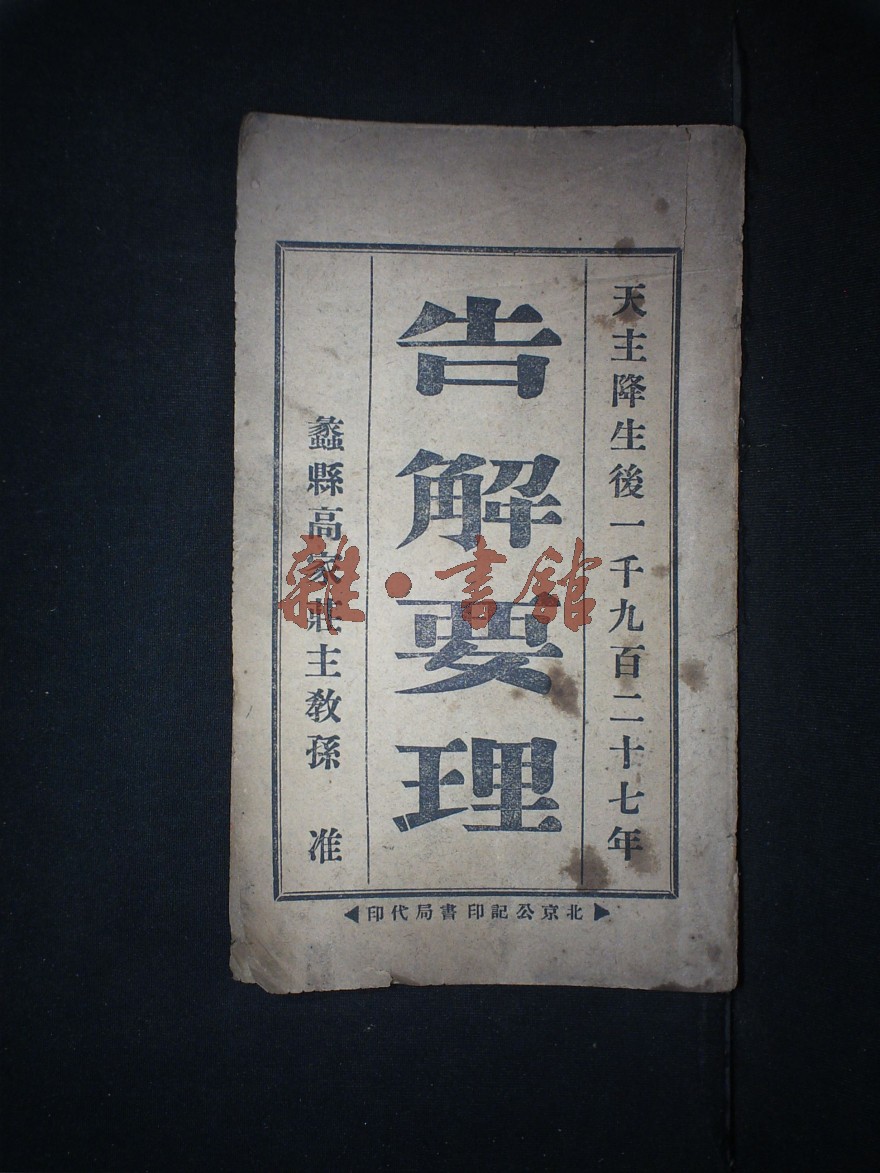 天主降生後一千九百二十七年
告解要理
蠡縣高家莊主教孫 准
北京公記印書局代印
雜·書館